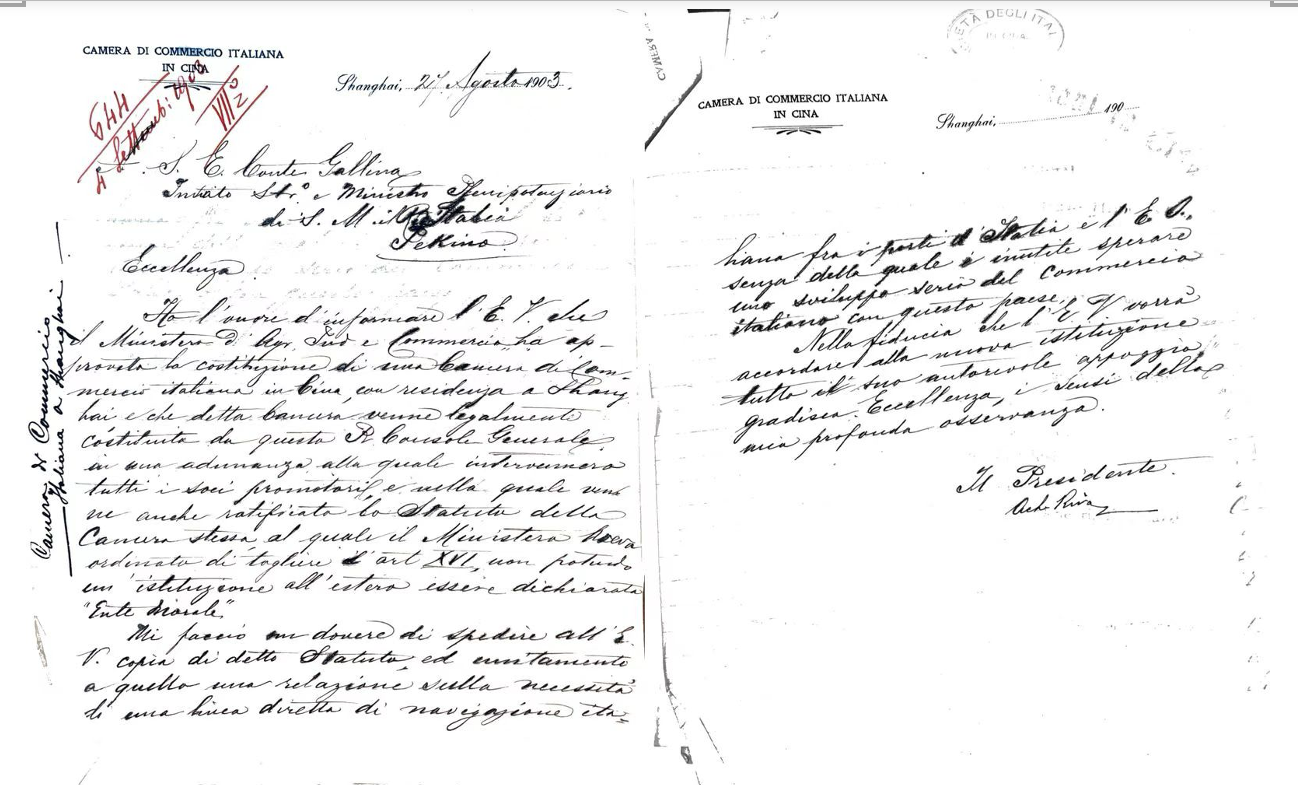 CAMERA DI COMMERCIO ITALIANA
IN CINA
Shanghai, 27 Agosto 1903.
644
4 Settemb: 1903
VIII
2
S. E. Conte Gallina
Inviato Str.º e Ministro Plenipotenziario
di S. M. il Re d'Italia
Pekino
Camera di Commercio
Italiana a Shanghai
Eccellenza
Ho l'onore d'informare l'E. V. che
il Ministero d'Agr. Ind e Commercio ha ap-
provato la costituzione di una Camera di Com-
mercio italiana in Cina, con residenza a Shang
hai e che detta Camera venne legalmente
costituita da questo R. Console Generale,
in una adunanza alla quale intervennero
tutti i soci promotori, e nella quale ven
ne anche ratificato lo Statuto della
Camera stessa al quale il Ministero aveva
ordinato di togliere l'art XVI, non potendo
un'istituzione all'estero essere dichiarata
"Ente Morale"
Mi faccio un dovere di spedire all'E.
V. copia di detto Statuto, ed unitamente
a quello una relazione sulla necessità
di una linea diretta di navigazione ita=
CAMERA
ETÀ DEGLI ITAL
IN CINA
CAMERA DI COMMERCIO ITALIANA
IN CINA
Shanghai, 190
liana fra i porti d'Italia e l'E. O.,
senza della quale è inutile sperare
uno sviluppo serio del Commercio
italiano con questo paese.
Nella fiducia che l'E V vorrà
accordare alla nuova istituzione
tutto il suo autorevole appoggio,
gradisca, Eccellenza, i sensi della
mia profonda osservanza.
Il Presidente.
Ach. Riva